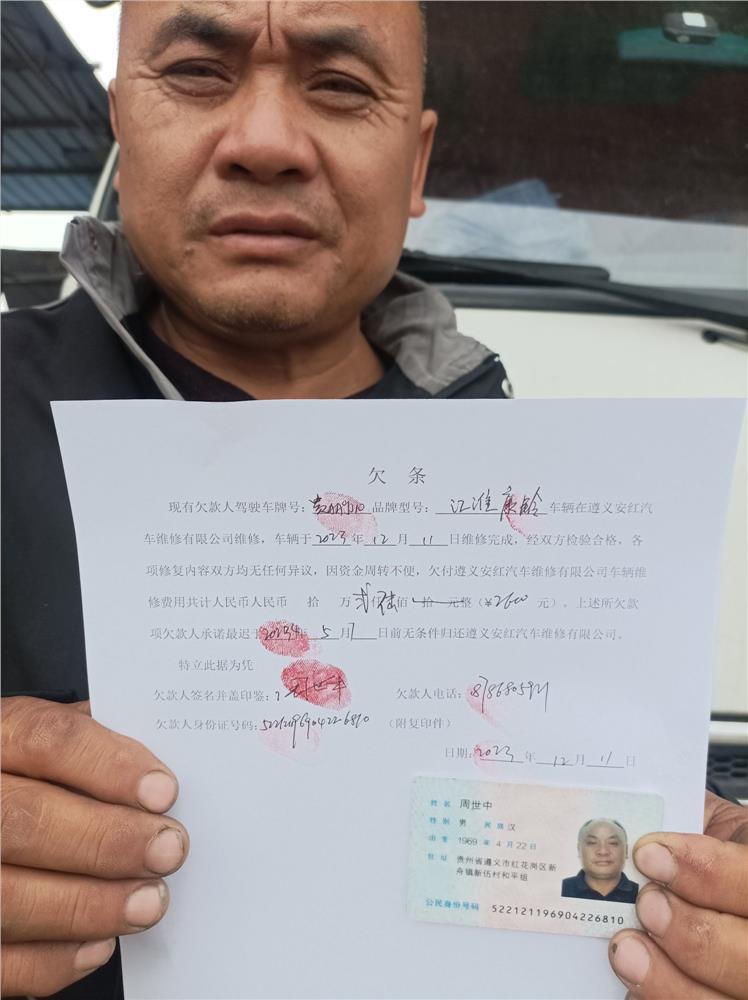 欠 条
现有欠款人驾驶车牌号: 品牌型号: 江淮康铃 车辆在遵义安红汽
车维修有限公司维修，车辆于2023年12月11日维修完成，经双方检验合格，各
项修复内容双方均无任何异议，因资金周转不便，欠付遵义安红汽车维修有限公司车辆维
修费用共计人民币人民币 拾 万 贰仟陆佰 拾 元整（¥2600 元）。上述所欠款
项欠款人承诺最迟于 年5月7日前无条件归还遵义安红汽车维修有限公司。
特立此据为凭
欠款人签名并盖印鉴: 周世中 欠款人电话: 18786805921
欠款人身份证号码: 522121196904226810 （附复印件）
日期: 2023 年 12 月 11 日
姓名 周世中
性别 男 民族 汉
出生 1969 年 4 月 22 日
住址 贵州省遵义市红花岗区新
舟镇新伍村和平组
公民身份号码 522121196904226810